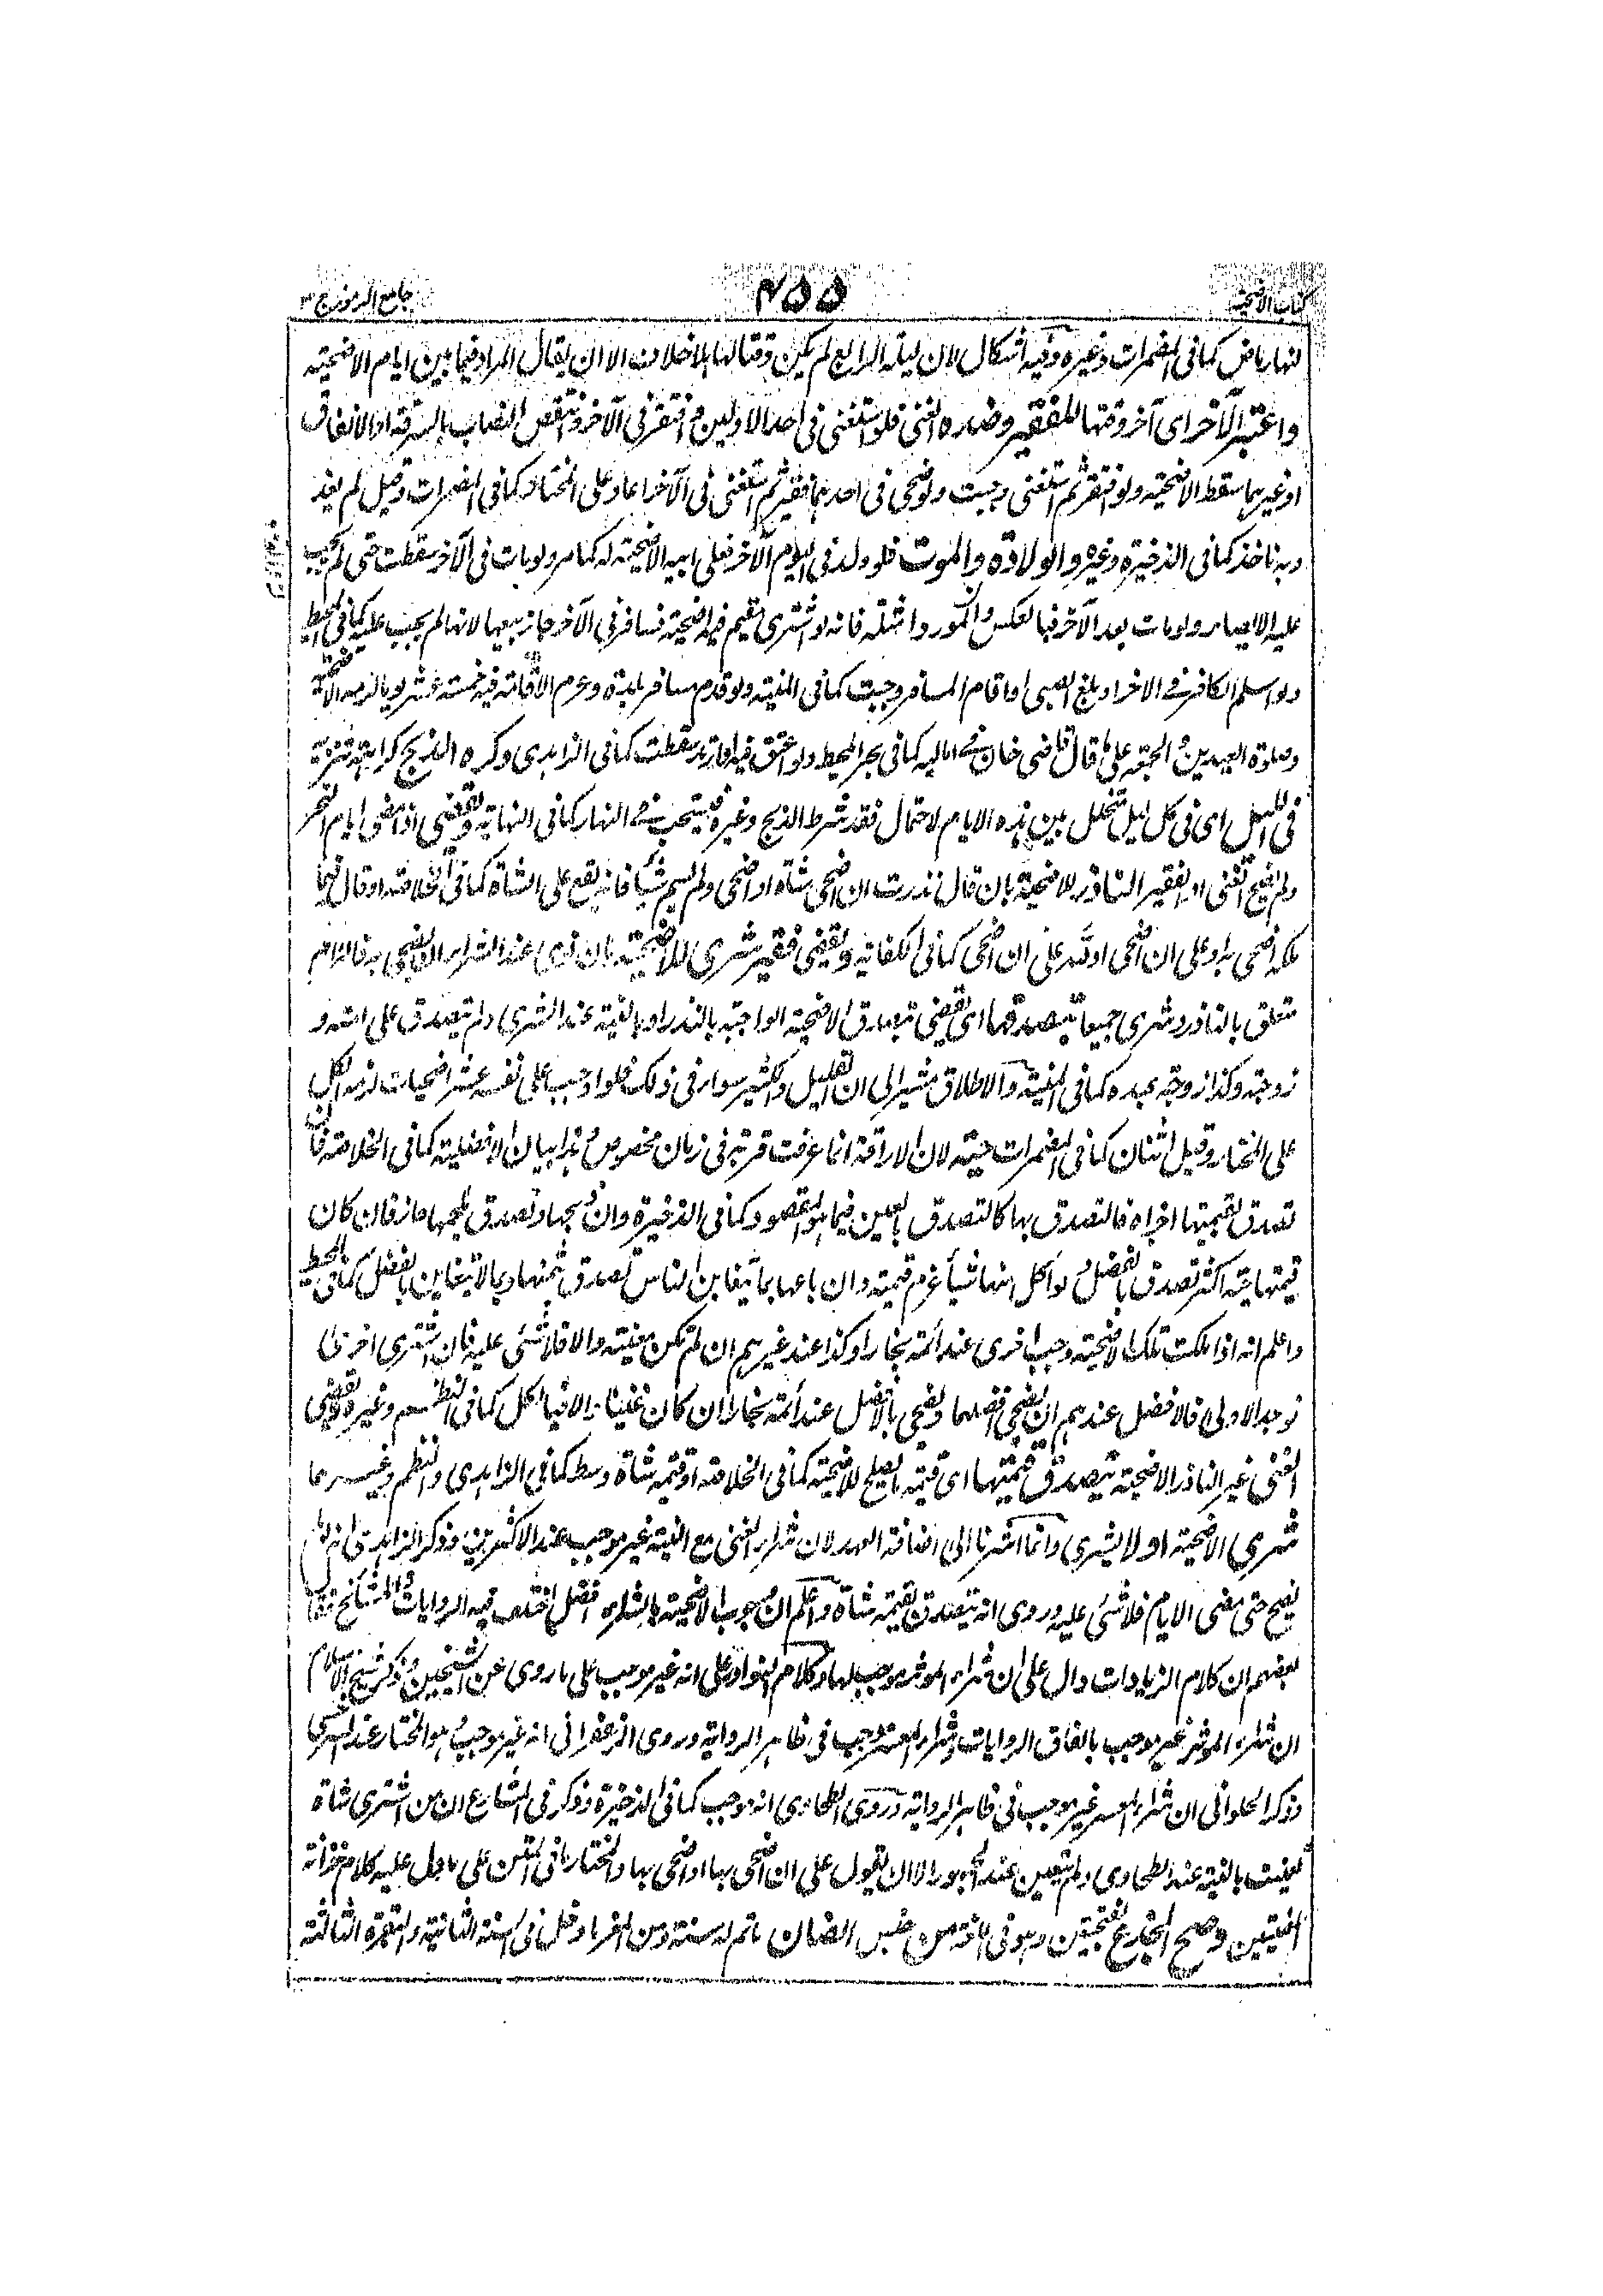 كتاب الاضحية
٤٥٥
جامع الرموز ج ٣
لنهار ماض كما فى المضمرات وغيره وفيه اشكال لان ليلة الرابع لم يكن وقتا لها بلا خلاف الا ان يقال المراد فيما بين ايام الاضحية
واعتبر الآخر اى آخر وقتها للفقير وضده الغنى فلو استغنى فى احد الاولين وافتقر فى الآخر وانتقص النصاب بالسرقة او الانفاق
او غيرهما سقط الاضحية ولو افتقر ثم استغنى وجبت ولو ضحى فى احدهما فقير ثم استغنى فى الآخر اعاد على المختار كما فى المضمرات وقيل لم يعد
وبه ناخذ كما فى الذخيرة وغيره والولادة والموت فلو ولد فى اليوم الآخر فعلى ابيه الاضحية له كما مر ولو مات فى الآخر سقطت حتى لم يجب
عليه الايصاء ولو مات بعد الآخر فبالعكس والمذكور امثلة فانه لو اشترى مقيم فيه اضحية فسافر فى الآخر جاز بيعها لانها لم يجب عليه كما فى المحيط
ولو اسلم الكافر فى الاخر او بلغ الصبى او اقام المسافر وجبت كما فى المنية ولو قدم مسافر بلدة وعزم الاقامة فيه خمسة عشر يوما لزمه الاضحية
وصلوة العيدين والجمعة على ما قال قاضى خان فى اماليه كما فى بحر المحيط ولو اعتق فيه او ارتد سقطت كما فى الزاهدى وكره الذبح كراهة تنزيه
فى الليل اى فى كل ليل تخلل بين هذه الايام لاحتمال فقد شرط الذبح وغيره فيستحب فى النهار كما فى النهاية ويقضى اذا مضى ايام النحر
ولم يضح الغنى او الفقير الناذر للاضحية بان قال نذرت ان اضحى شاة او اضحى ولم يسم شيئا فانه يقع على الشاة كما فى الخلاصة او قال فيما
ملكه اضحى به او على ان اضحى او لله على ان اضحى كما فى الكفاية ويقضى فقير شرى للاضحية بان نوى عند الشراء ان يضحى به فاللام
متعلق بالناذر وشرى جميعا بتصدقها اى يقضى بتصدق الاضحية الواجبة بالنذر او بالنية عند الشرى ولم يتصدق على ابنه و
زوجته وكذا زوجة عبده كما فى المنية والاطلاق مشير الى ان القليل والكثير سواء فى ذلك فلو اوجب على نفسه عشر اضحيات لزمه الكل
على المختار وقيل اثنان كما فى المضمرات حية لان الاراقة انما عرفت قربة فى زمان مخصوص وهذا بيان الافضلية كما فى الخلاصة فان
تصدق بقيمتها اجزاه فالتصدق بها كالتصدق بالعين فيما هو المقصود كما فى الذخيرة وان ذبحها وتصدق بلحمها جاز فان كان
قيمتها حية اكثر تصدق بالفضل ولو اكل منها شيئا غرم قيمته وان باعها بما يتغابن الناس تصدق بثمنها وبما لا يتغابن بالفضل كما فى المحيط
واعلم انه اذا هلكت تلك الاضحية وجب اخرى عند ائمة بخارا وكذا عند غيرهم ان لم تكن معينة والا فلا شئ عليه فان اشترى اخرى
فوجد الاولى فالافضل عندهم ان يضحى افضلهما ويضحى بالافضل عند ائمة بخارا ان كان غنيا والا فبالكل كما فى النظم وغيره ويقضى
الغنى غير الناذر الاضحية بتصدق قيمتها اى قيمة ما يصلح للاضحية كما فى الخلاصة او قيمة شاة وسط كما فى الزاهدى والنظم وغيرهما
شرى الاضحية او لا يشرى وانما اشرنا الى اضافة العهد لان شراء الغنى مع النية غير موجب عند الاكثرين وذكر الزاهدى انه لو لم
يضح حتى مضى الايام فلا شئ عليه وروى انه يتصدق بقيمة شاة واعلم ان وجوب الاضحية بالشراء افضل اختلف فيه الروايات والمشائخ فقال
بعضهم ان كلام الزيادات دال على ان شراء الموسر موجب لها وكلام النوادر على انه غير موجب على ما روى عن الشيخين وذكر شيخ الاسلام
ان شراء الموسر غير موجب باتفاق الروايات وشراء المعسر موجب فى ظاهر الرواية وروى الزعفرانى انه غير موجب وهو المختار عند السرخسى
وذكر الحلوانى ان شراء المعسر غير موجب فى ظاهر الرواية وروى الطحاوى انه موجب كما فى الذخيرة وذكر فى المشارع ان من اشترى شاة
تعينت بالنية عند الطحاوى ولم يتعين عند الجمهور الا ان يقول على ان اضحى بها او اضحى بها والمختار ما فى المتن على ما دل عليه كلام خزانة
المفتين وصح الجذع بفتحتين وهو فى اللغة من جنس الضان ما تم له سنة ومن المعز ما دخل فى السنة الثانية والبقرة الثالثة